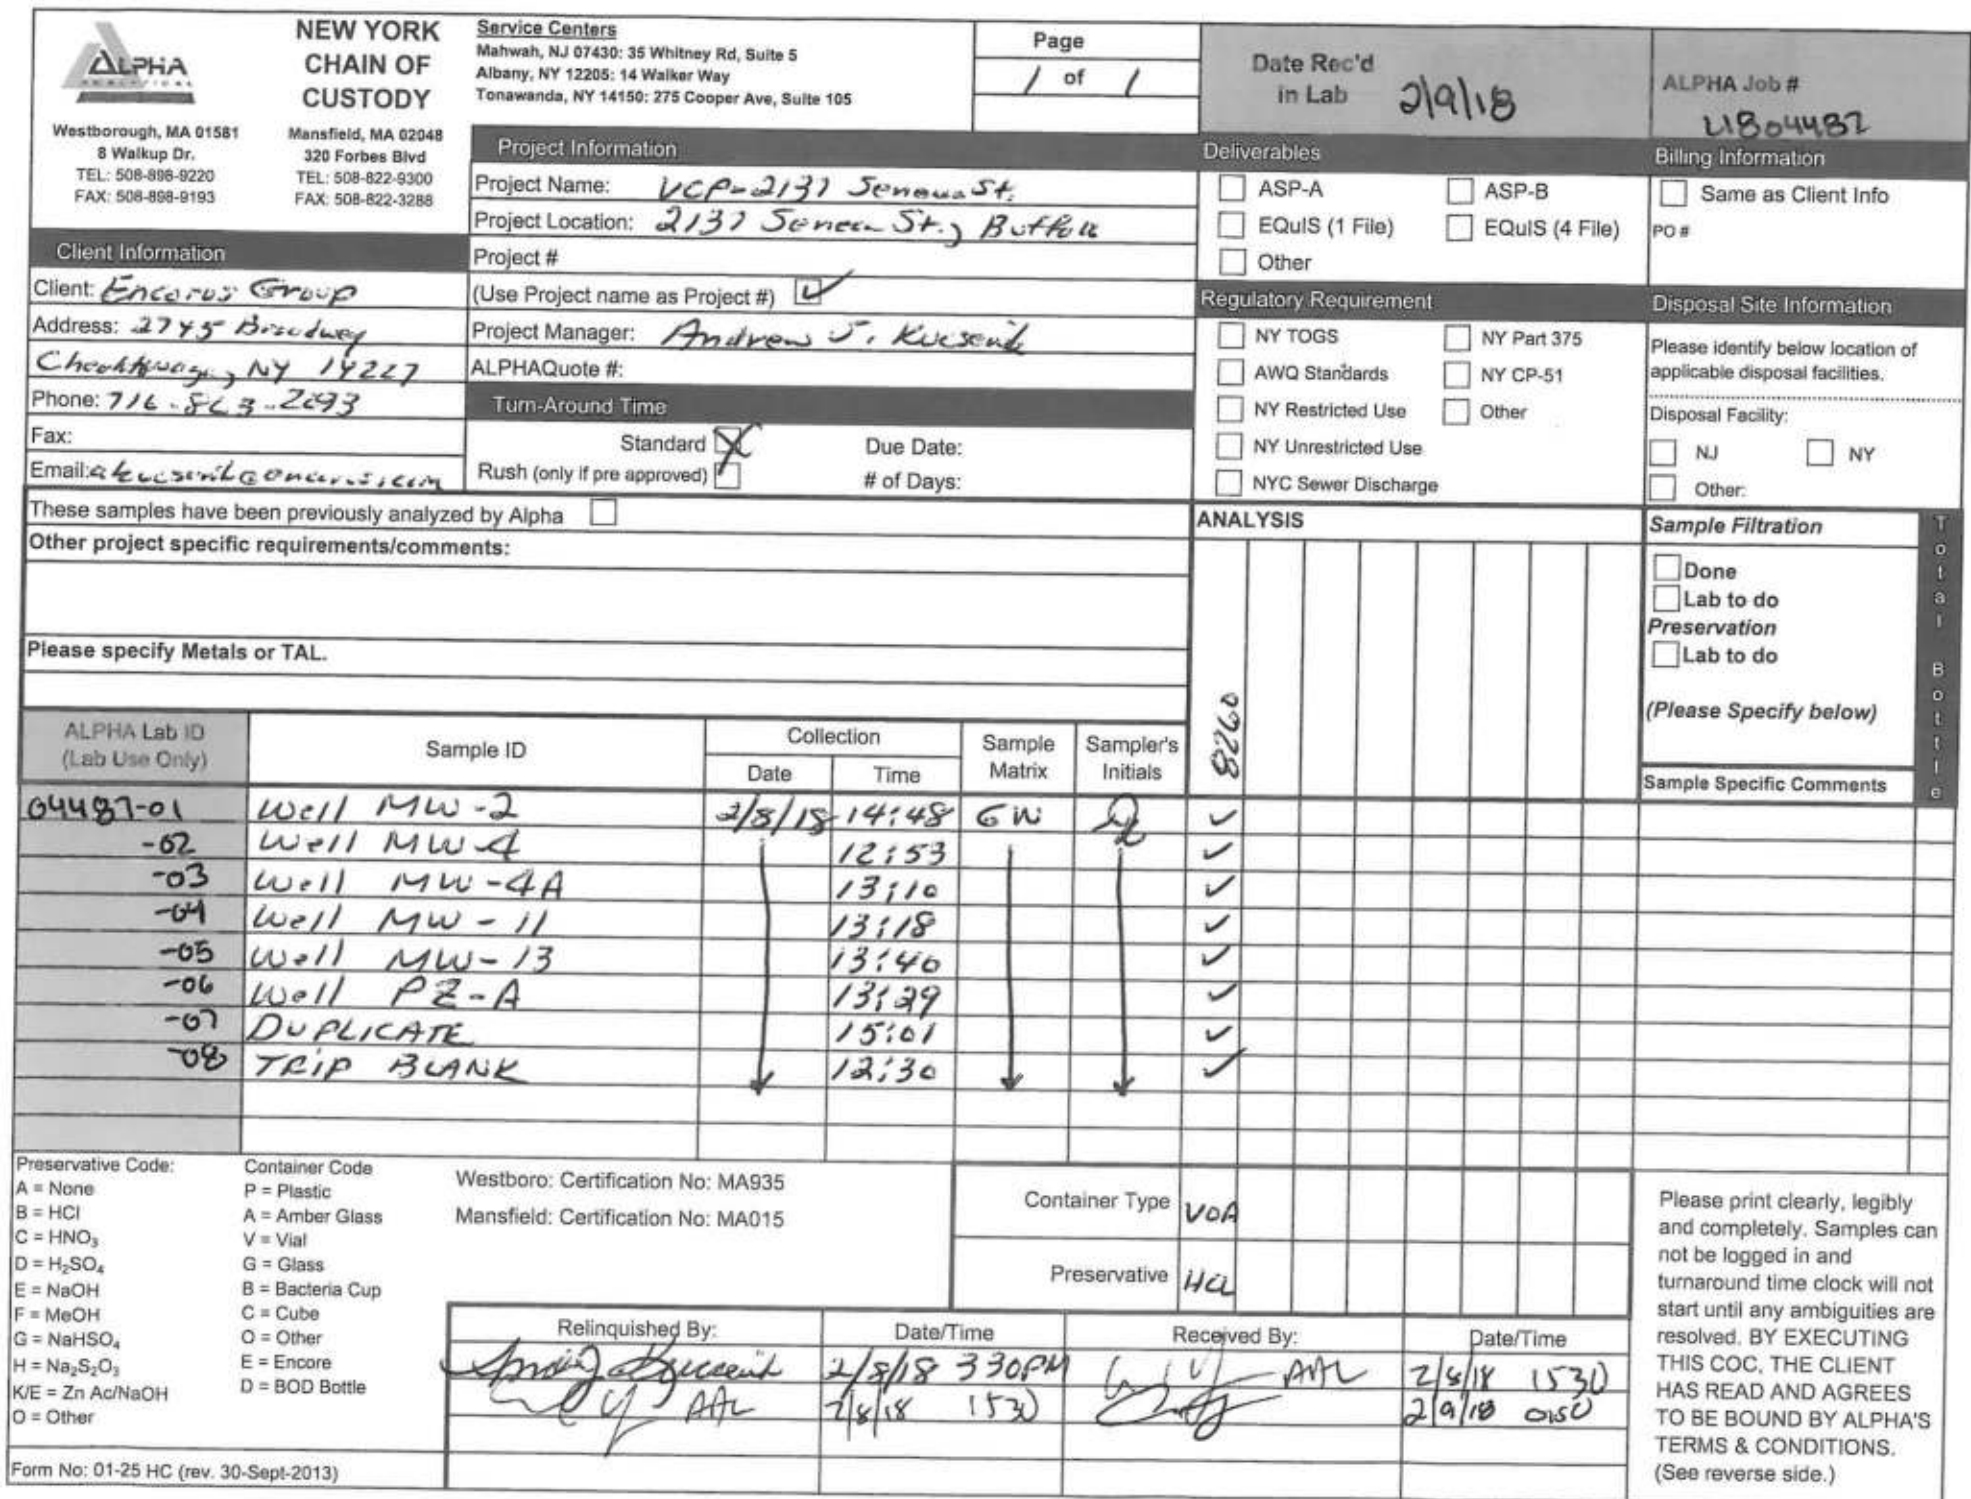 ALPHA
ANALYTICAL
NEW YORK
CHAIN OF
CUSTODY
Westborough, MA 01581
8 Walkup Dr.
TEL: 508-898-9220
FAX: 508-898-9193
Mansfield, MA 02048
320 Forbes Blvd
TEL: 508-822-9300
FAX: 508-822-3288
Service Centers
Mahwah, NJ 07430: 35 Whitney Rd, Suite 5
Albany, NY 12205: 14 Walker Way
Tonawanda, NY 14150: 275 Cooper Ave, Suite 105
Page
1 of 1
Date Rec'd
in Lab 2/9/18
ALPHA Job #
L1804487
Project Information
Project Name: VCP-2137 Seneca St.
Project Location: 2137 Seneca St., Buffalo
Project #
(Use Project name as Project #) ✓
Project Manager: Andrew J. Kucserik
ALPHAQuote #:
Turn-Around Time
Standard X
Due Date:
Rush (only if pre approved)
# of Days:
Client Information
Client: Encorus Group
Address: 2745 Broadway
Cheektowaga, NY 14227
Phone: 716-863-2293
Fax:
Email:
Deliverables
ASP-A
ASP-B
EQuIS (1 File)
EQuIS (4 File)
Other
Regulatory Requirement
NY TOGS
NY Part 375
AWQ Standards
NY CP-51
NY Restricted Use
Other
NY Unrestricted Use
NYC Sewer Discharge
Billing Information
Same as Client Info
PO #
Disposal Site Information
Please identify below location of
applicable disposal facilities.
Disposal Facility:
NJ
NY
Other:
These samples have been previously analyzed by Alpha
Other project specific requirements/comments:
Please specify Metals or TAL.
ANALYSIS
8260
Sample Filtration
Done
Lab to do
Preservation
Lab to do
(Please Specify below)
Sample Specific Comments
Total Bottle
ALPHA Lab ID
(Lab Use Only)
Sample ID
Collection
Date
Time
Sample
Matrix
Sampler's
Initials
04487-01 Well MW-2 2/8/18 14:48 GW ✓
-02 Well MW-4 12:53 ✓
-03 Well MW-4A 13:10 ✓
-04 Well MW-11 13:18 ✓
-05 Well MW-13 13:40 ✓
-06 Well PZ-A 13:29 ✓
-07 DUPLICATE 15:01 ✓
-08 TRIP BLANK 12:30 ✓
Preservative Code:
A = None
B = HCl
C = HNO₃
D = H₂SO₄
E = NaOH
F = MeOH
G = NaHSO₄
H = Na₂S₂O₃
K/E = Zn Ac/NaOH
O = Other
Container Code
P = Plastic
A = Amber Glass
V = Vial
G = Glass
B = Bacteria Cup
C = Cube
O = Other
E = Encore
D = BOD Bottle
Westboro: Certification No: MA935
Mansfield: Certification No: MA015
Container Type VOA
Preservative HCL
Relinquished By:
Date/Time
Received By:
Date/Time
2/8/18 330PM AAL 2/8/18 1530
AAL 2/8/18 1530 2/9/18 0150
Please print clearly, legibly
and completely. Samples can
not be logged in and
turnaround time clock will not
start until any ambiguities are
resolved. BY EXECUTING
THIS COC, THE CLIENT
HAS READ AND AGREES
TO BE BOUND BY ALPHA'S
TERMS & CONDITIONS.
(See reverse side.)
Form No: 01-25 HC (rev. 30-Sept-2013)